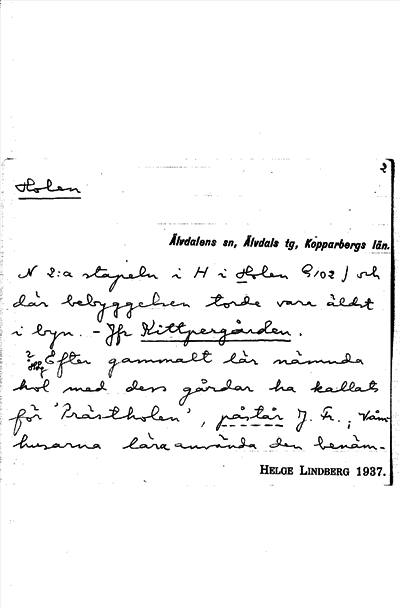 2
Holen
Älvdalens sn, Älvdals tg, Kopparbergs län.
N 2:a stapeln i H i Holen G102) och
där bebyggelsen torde vara äldst
i byn. - Jfr Kittpergården.
Efter gammalt lär nämnda
hol med dess gårdar ha kallats
för 'Prästholen', påstår J. Fr.; Våm-
husarna lära använda den benäm-
HELGE LINDBERG 1937.